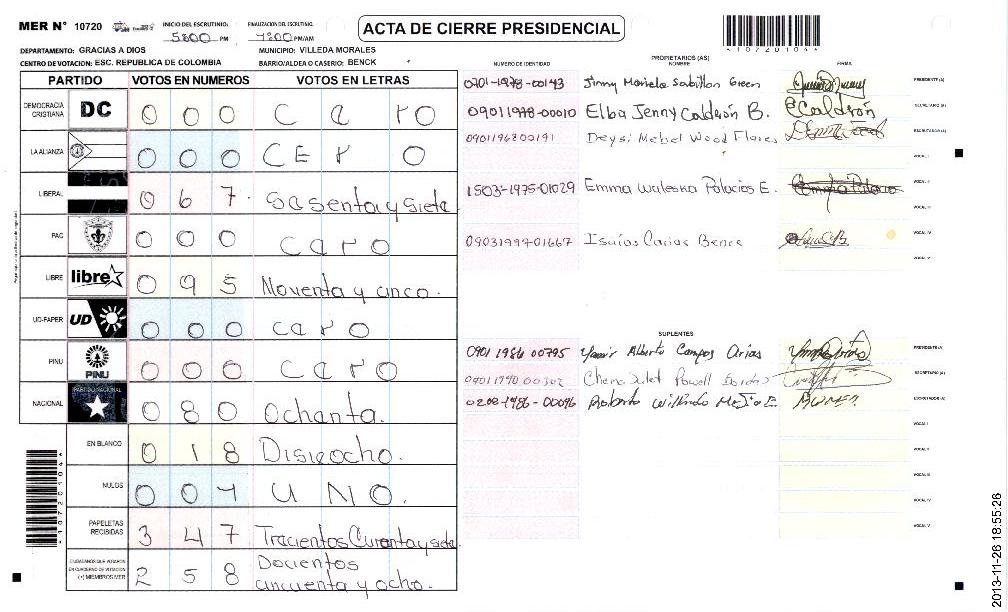 MER Nº 10720 INICIO DEL ESCRUTINIO: 5:00 PM FINALIZACION DEL ESCRUTINIO: 7:00 PM/AM ACTA DE CIERRE PRESIDENCIAL
10720104
DEPARTAMENTO: GRACIAS A DIOS MUNICIPIO: VILLEDA MORALES
CENTRO DE VOTACION: ESC. REPUBLICA DE COLOMBIA BARRIO/ALDEA O CASERIO: BENCK
PARTIDO VOTOS EN NUMEROS VOTOS EN LETRAS
DEMOCRACIA CRISTIANA DC 0 0 0 Caro
LA ALIANZA 0 0 0 CErO
LIBERAL 0 6 7. Sasenta y siete
PAC 0 0 0 Caro
LIBRE libre 0 9 5 Noventa y cinco.
UD-FAPER UD 0 0 0 Caro
PINU PINU 0 0 0 Caro
NACIONAL PARTIDO NACIONAL 0 8 0 Ochanta.
EN BLANCO 0 1 8 Disieocho.
NULOS 0 0 1 UNO.
PAPELETAS RECIBIDAS 3 4 7 Tracientos Curanta y siete.
CIUDADANOS QUE VOTARON EN CUADERNO DE VOTACION (+) MIEMBROS MER 2 5 8 Docientos cincuenta y ocho.
NUMERO DE IDENTIDAD PROPIETARIOS (AS) NOMBRE FIRMA
0701-1978-00143 Jinny Mariela Sabillon Green PRESIDENTE (A)
09011978-00010 Elba Jenny Calderón B. E Calderón SECRETARIO (A)
0901196800191 Deysi Mebel Wood Flores ESCRUTADOR (A)
VOCAL I
1503-1975-01029 Emma Waleska Palacios E. VOCAL II
VOCAL III
0903199701667 Isaias Carias Bence VOCAL IV
VOCAL V
SUPLENTES
0901 1986 00795 Yamir Alberto Campos Arias PRESIDENTE (A)
Powell SECRETARIO (A)
0208-1986-00096 Roberto Wilfredo Mejia E. ESCRUTADOR (A)
VOCAL I
VOCAL II
VOCAL III
VOCAL IV
VOCAL V
10720104
2013-11-26 18:55:26